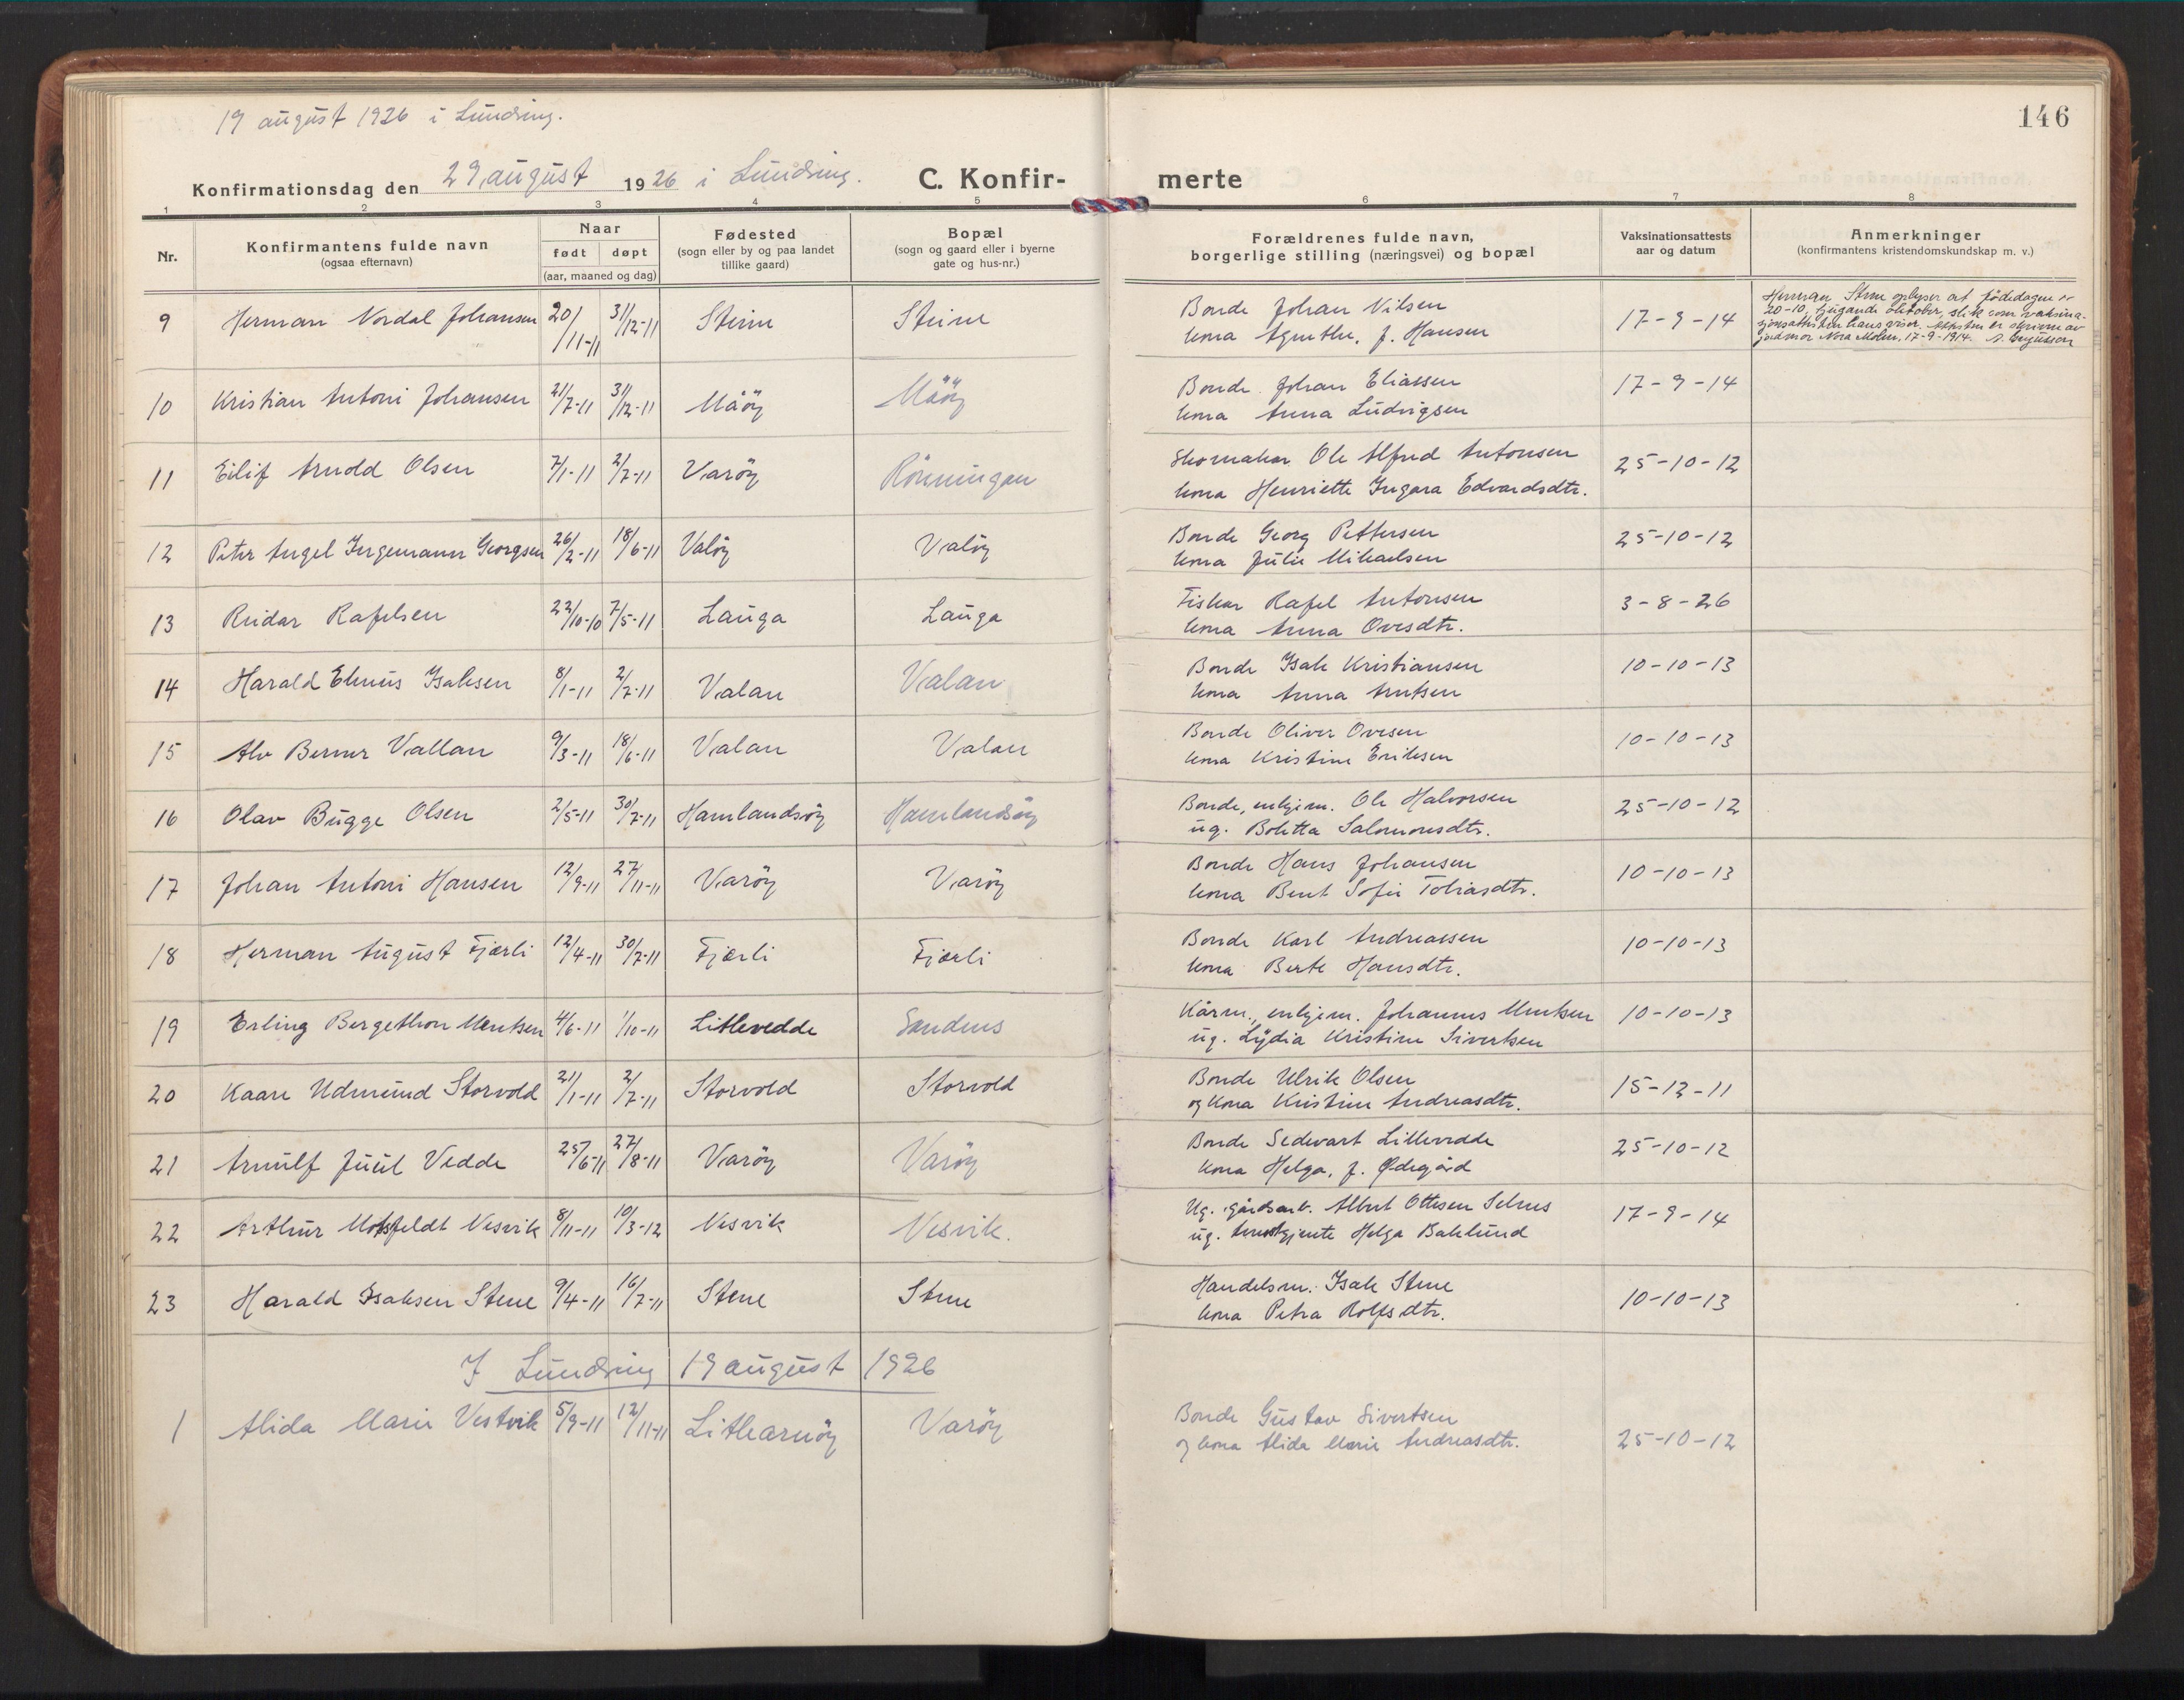 19 august 1926 i Lundring.
146
Konfirmationsdag den 29 august 1926 i Lundring. C. Konfir- merte
1 2 3 4 5 6 7 8
Nr. Konfirmantens fulde navn (ogsaa efternavn) Naar født døpt (aar, maaned og dag) Fødested (sogn eller by og paa landet tillike gaard) Bopæl (sogn og gaard eller i byerne gate og hus-nr.) Forældrenes fulde navn, borgerlige stilling (næringsvei) og bopæl Vaksinationsattests aar og datum Anmerkninger (konfirmantens kristendomskundskap m. v.)
9 Herman Nordal Johansen 20/11-11 31/12-11 Steine Steine Bonde Johan Nilsen 17-9-14 Herman Stene oplyser at fødedagen er
kona Agnethe, f. Hansen 20-10, tjugande oktober, slik som vaksina-
sjonsattesten hans viser. Attesten er skrive av
jordmor Nora Molen, 17-9-1914.
10 Kristian Antoni Johansen 21/7-11 31/12-11 Måöy Måöy Bonde Johan Eliassen 17-9-14
kona Anna Ludvigsen
11 Eilif Arnold Olsen 7/1-11 2/7-11 Varöy Rönningen Skomakar Ole Alfred Antonsen 25-10-12
kona Henriette Ingara Edvardsdtr.
12 Peter Angel Ingemann Georgsen 26/2-11 18/6-11 Valöy Valöy Bonde Georg Pettersen 25-10-12
kona Julie Mikaelsen
13 Reidar Rafelsen 22/10-10 7/5-11 Lauga Lauga Fiskar Rafel Antonsen 3-8-26
kona Anna Ovesdtr.
14 Harald Elenus Isaksen 8/1-11 2/7-11 Valan Valan Bonde Isak Kristiansen 10-10-13
kona Anna Arntsen
15 Alv Berner Vallan 9/3-11 18/6-11 Valan Valan Bonde Oliver Ovesen 10-10-13
kona Kristine Eriksen
16 Olav Bugge Olsen 2/5-11 30/7-11 Hamlandsöy Hamlandsöy Bonde, enkjem. Ole Halvorsen 25-10-12
ug. Boletta Salomonsdtr.
17 Johan Antoni Hansen 12/9-11 27/11-11 Varöy Varöy Bonde Hans Johansen 10-10-13
kona Bent Sofie Tobiasdtr.
18 Herman August Fjærli 12/4-11 30/7-11 Fjærli Fjærli Bonde Karl Andreassen 10-10-13
kona Berte Hansdtr.
19 Erling Bergethon Mentsen 4/6-11 1/10-11 Litlevedde Sandens Kårm., enkjem. Johannes Mentsen 10-10-13
ug. Lydia Kristine Sivertsen
20 Kaare Udmund Storvold 21/1-11 2/7-11 Storvold Storvold Bonde Ulrik Olsen 15-12-11
og kona Kristine Andreasdtr.
21 Arnulf Juul Vedde 25/6-11 27/8-11 Varöy Varöy Bonde Sedevart Lillevedde 25-10-12
kona Helga, f. Ødegård
22 Arthur Motsfeldt Nesvik 8/11-11 10/3-12 Nesvik Nesvik. Ug. gårdsarb. Albert Ottesen Selnes 17-9-14
ug. tenestgjente Helga Baklund
23 Harald Isaksen Stene 9/4-11 16/7-11 Stene Stene Handelsm. Isak Stene 10-10-13
kona Petra Rolfsdtr.
I Lundring 19 august 1926
1 Alida Marie Vestvik 5/9-11 12/11-11 Litlearnöy Varöy Bonde Gustav Sivertsen 25-10-12
og kona Alida Marie Andreasdtr.